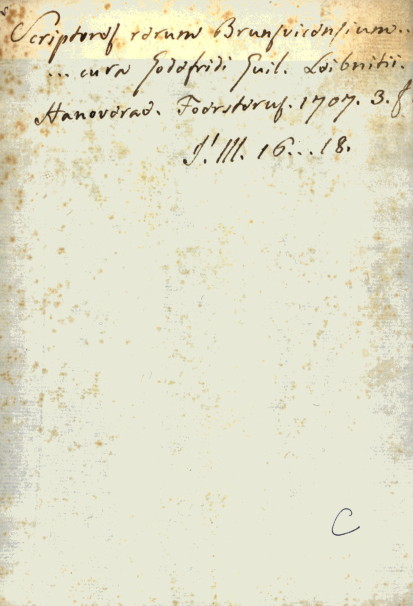 Scriptores rerum Brunsvicensium..
...cura Godofridi Guil. Leibnitii.
Hanoverae. Foersterus. 1707. 3. f
J! III. 16...18.
C